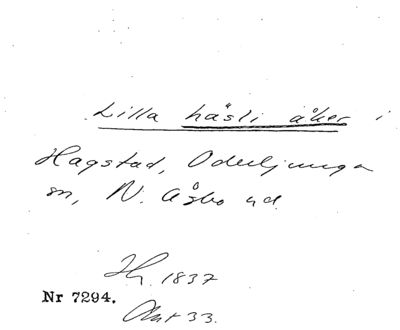 Lilla håsli åker i
Hagstad, Oderljunga
sn, N. Åsbo hd.
Hr. 1837
Nr 7294.
Akt 33.